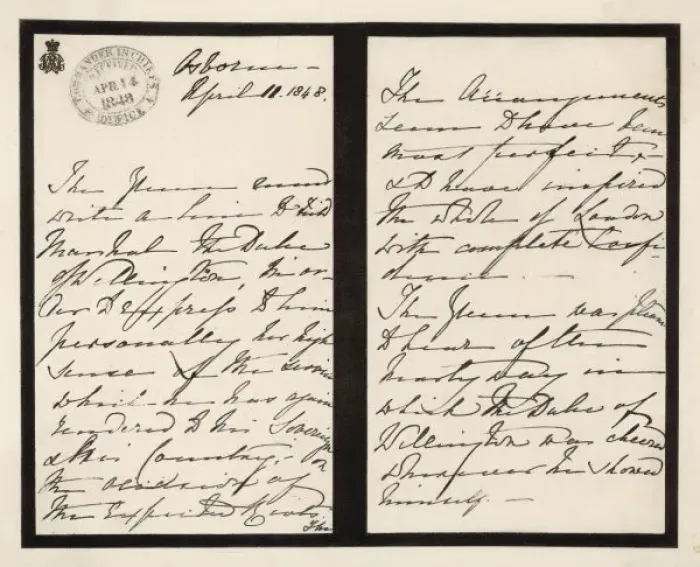 COMMANDER IN CHIEF'S
RECEIVED
APR. 14
1848
OFFICE
Osborne –
April 11. 1848.
The Queen must
write a line to Field
Marshal the Duke
of Wellington, in or-
der to express to him
personally her high
sense of the service
which he has again
rendered to his Sovereign
& his Country, – on
the occasion of
the expected Riots.
The
The Arrangements
seem to have been
most perfect, –
& to have inspired
the whole of London
with complete Confi-
dence. –
The Queen was pleased
to hear of the
hearty way in
which the Duke of
Wellington was cheered
whenever he showed
himself. –